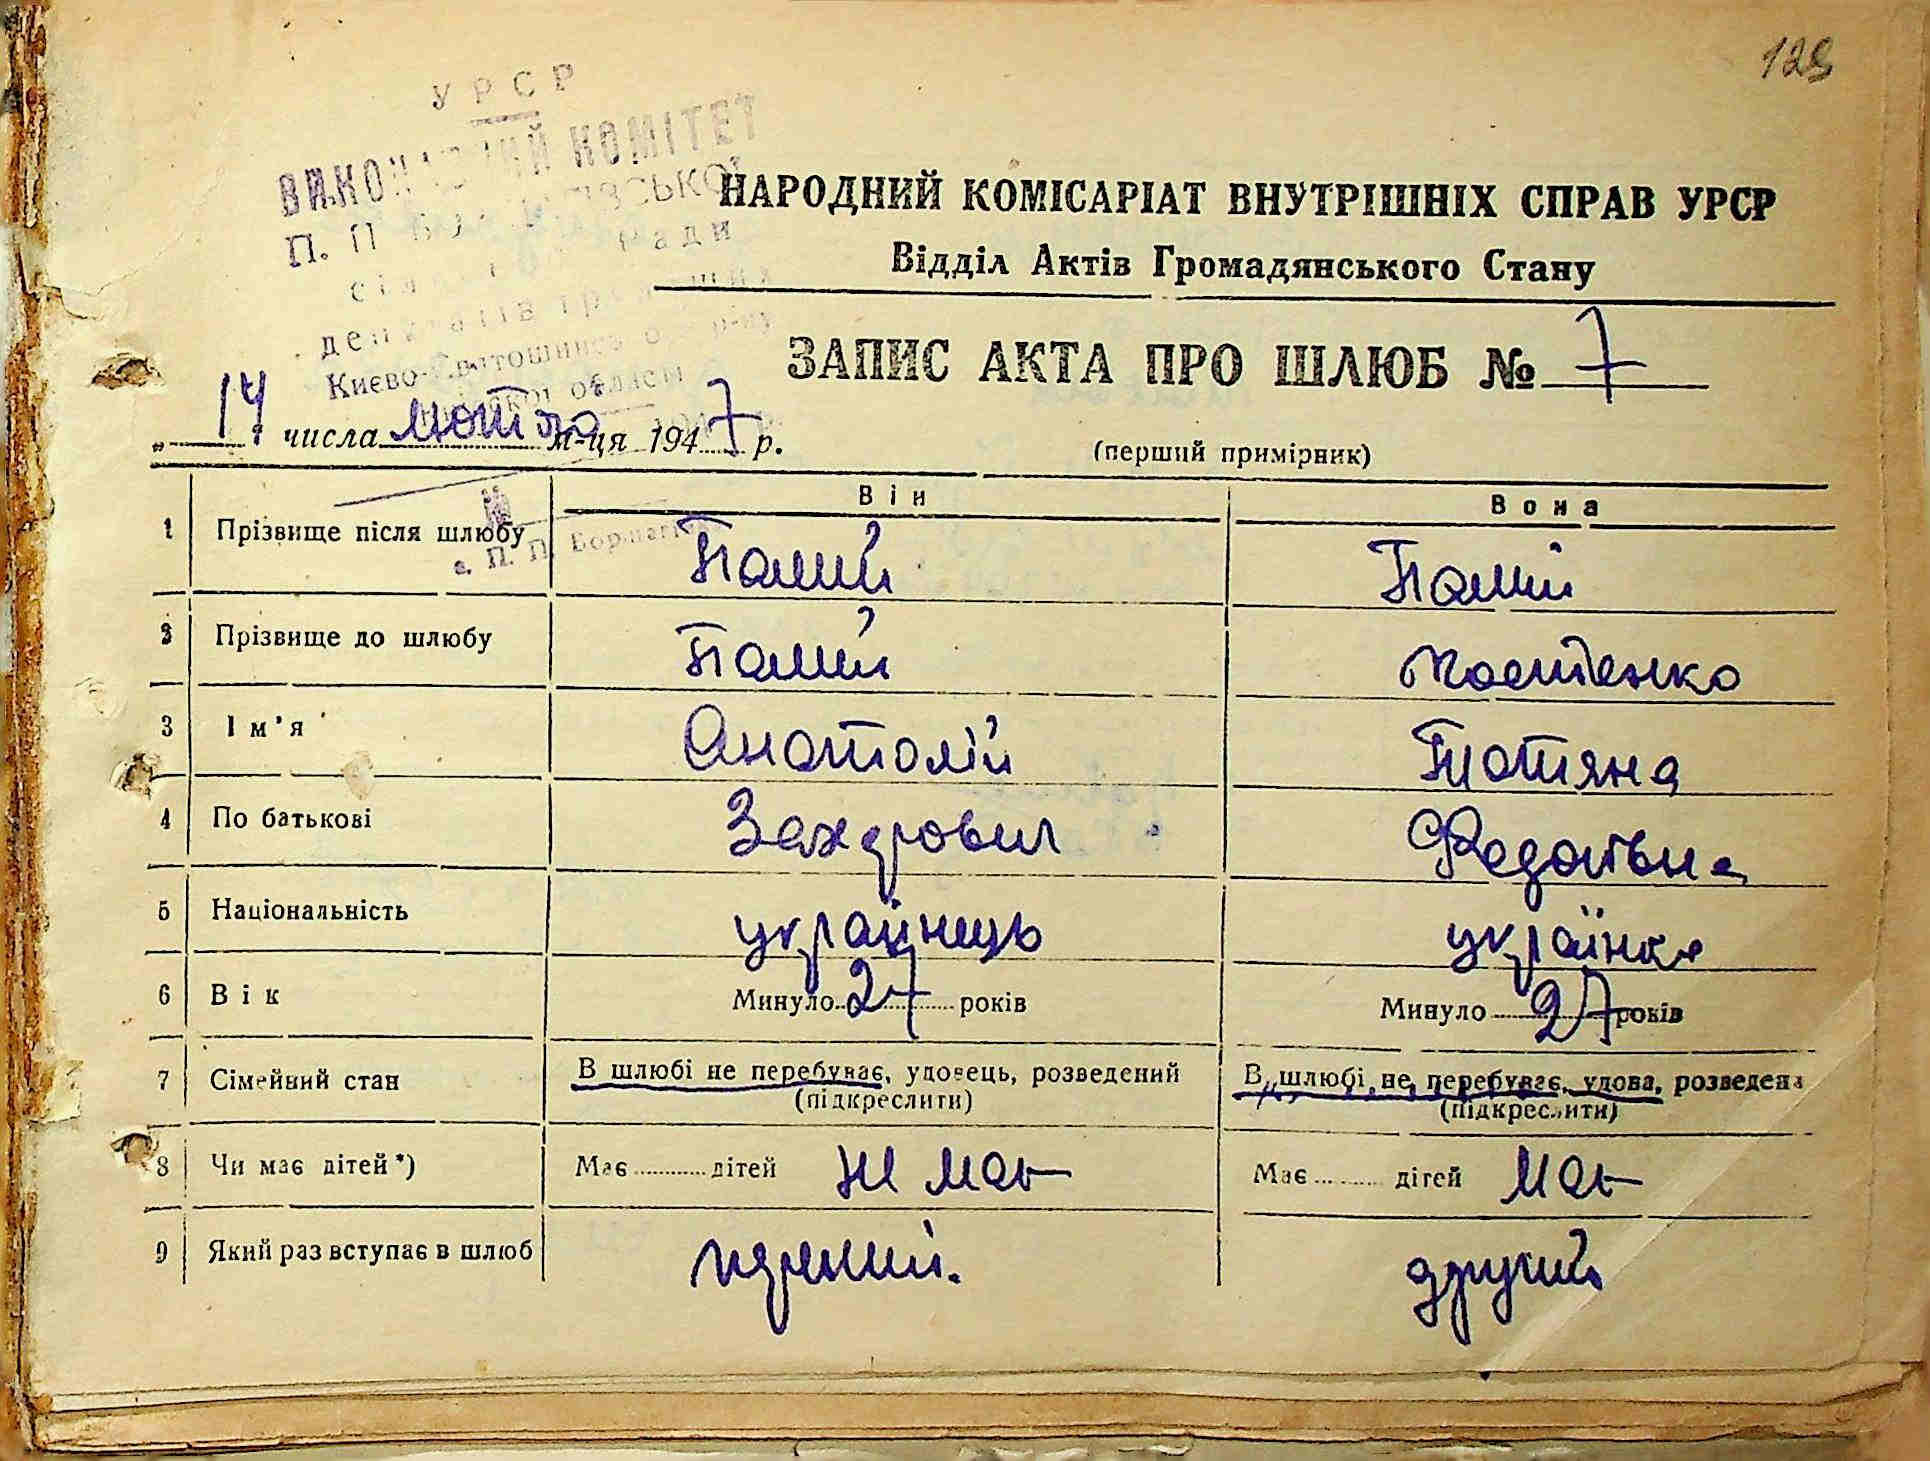 129
УРСР
ВИКОНАВЧИЙ КОМІТЕТ
НАРОДНИЙ КОМІСАРІАТ ВНУТРІШНІХ СПРАВ УРСР
Відділ Актів Громадянського Стану
Києво-Святошинського р-ну
ЗАПИС АКТА ПРО ШЛЮБ № 7
„ 14 " числа лютого м-ця 1947 р.
(перший примірник)
Він Вона
1 Прізвище після шлюбу Палий Палій
с. П. П. Борщагівка
2 Прізвище до шлюбу Палий Костенко
3 Ім'я Анатолій Татяна
4 По батькові Захарович Федотівна
5 Національність українець українка
6 Вік Минуло 27 років Минуло 27 років
7 Сімейний стан В шлюбі не перебуває, удовець, розведений В шлюбі не перебуває, удова, розведена
(підкреслити) (підкреслити)
8 Чи має дітей*) Має дітей не має Має дітей має
9 Який раз вступає в шлюб перший. другий